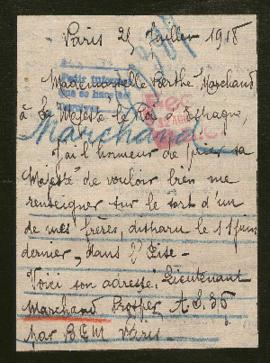 Paris 25 Juillet 1918
Mademoiselle Berthe Marchand
à Sa Majesté le Roi d'Espagne,
Marchand
J'ai l'honneur de prier sa
Majesté de vouloir bien me
renseigner sur le sort d'un
de mes frères, disparu le 11 juin
dernier, dans l'Oise.
Voici son adresse: Lieutenant
Marchand Prosper A.S. 35
par B.C.M. Paris.